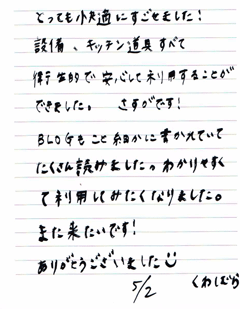 とっても快適にすごせました!
設備、キッチン道具すべて
衛生的で安心して利用することが
できました。さすがです!
BLOGもこと細かに書かれていて
たくさん読みました。わかりやすく
て利用してみたくなりました。
また来たいです!
ありがとうございました
5/2 くわしむら